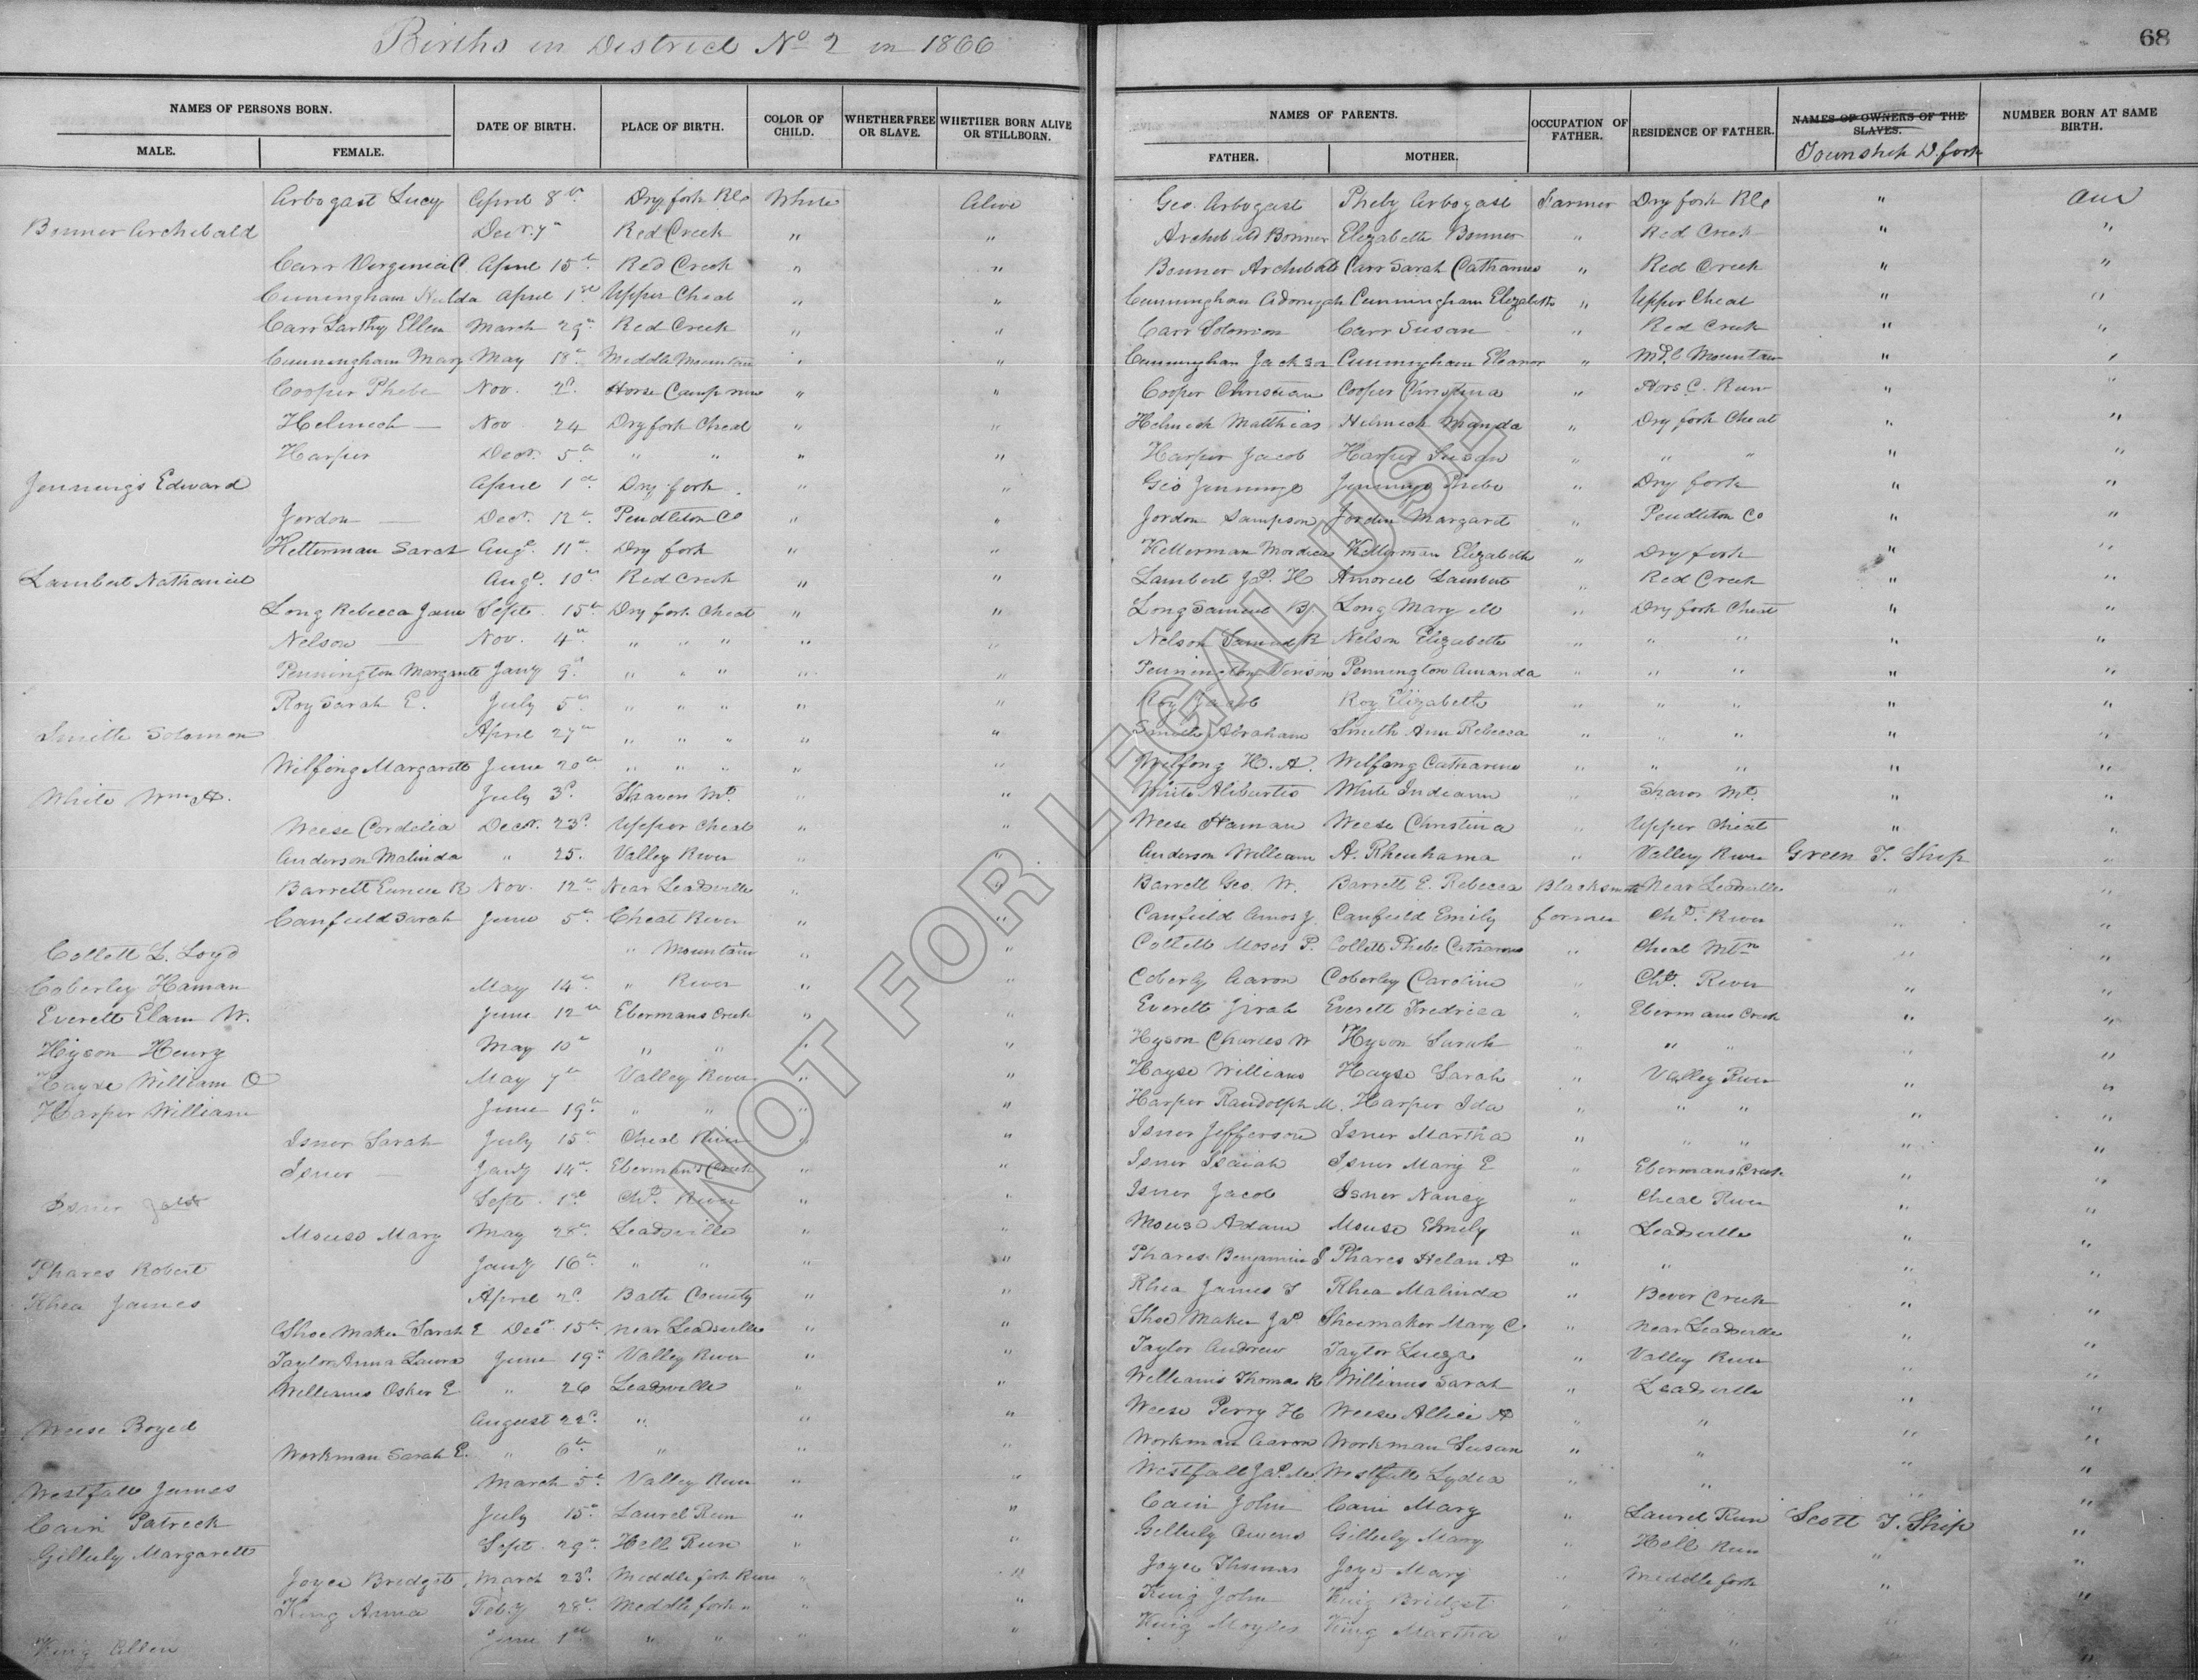 Births in District No 2 in 1866
68
NAMES OF PERSONS BORN. DATE OF BIRTH. PLACE OF BIRTH. COLOR OF CHILD. WHETHER FREE OR SLAVE. WHETHER BORN ALIVE OR STILLBORN. NAMES OF PARENTS. OCCUPATION OF FATHER. RESIDENCE OF FATHER. NAMES OF OWNERS OF THE SLAVES. NUMBER BORN AT SAME BIRTH.
MALE. FEMALE. FATHER. MOTHER. Township D. fork
Arbogast Lucy April 8th Dry fork White Alive Geo. Arbogast Pheby Arbogast Farmer Dry fork " One
Bonner Archibald Decr. 7th Red Creek " " Archibald Bonner Elizabeth Bonner " Red Creek " "
Carr Virginia C. April 15th Red Creek " " Bonner Archibald Carr Sarah Catharine " Red Creek " "
Cuningham Hulda April 1st Upper Cheat " " Cunningham Cunningham Elizabeth " Upper Cheat " "
Carr Ellen March 29th Red Creek " " Carr Solomon Carr Susan Red Creek " "
Cunningham Mary May 18th Middle Mountain " " Cunningham Jackson Cunningham Eleanor " Mountain " "
Cooper Phebe Nov. 2d Horse Camp run " " Cooper Christian Cooper Christina " Hors C. Run " "
Helmick — Nov 24 Dry fork Cheat " " Helmick Matthias Helmick Manda " Dry fork Cheat " "
Harper Decr. 5th " " " " Harper Jacob Harper Susan " " " " "
Jennings Edward April 1st Dry fork " " Geo Jennings Jennings Phebe " Dry fork " "
Jordon — Decr. 12th Pendleton Co " " Jordon Sampson Jordon Margaret " Pendleton Co " "
Ketterman Sarah Augt. 11th Dry fork " " Ketterman Ketterman Elizabeth " Dry fork " "
Lambert Nathaniel Augt. 10th Red Creek " " Lambert Jas. H Lambert " Red Creek " "
Long Rebecca Jane Sept. 15th Dry fork Cheat " " Long Samuel B. Long Mary M " Dry fork Cheat " "
Nelson — Nov. 4th " " " " " Nelson Samuel R Nelson Elizabeth " " " " "
Pennington Margarett Jany 9th " " " " " Pennington Vinson Pennington Amanda " " " " "
Roy Sarah E. July 5th " " " " " Roy Jacob Roy Elizabeth " " " " "
Smith Solomon April 27th " " " " " Smith Abraham Smith Ann Rebecca " " " " "
Wilfong Margarett June 20th " " " " " Wilfong H. A. Wilfong Catharine " " " " "
White Wm A. July 3d Shaver Mt. " " White Aliburtis White Indiann " Shaver Mt. " "
Weese Cordelia Decr. 23d Upper Cheat " " Weese Haman Weese Christina " Upper Cheat " "
Anderson Malinda " 25. Valley River " " Anderson William A. Rhenhama " Valley River Green T. Ship "
Barrett R Nov. 12th Near Leadsville " " Barrett Geo. W. Barrett E. Rebecca Blacksmith Near Leadsville " "
Canfield Sarah June 5th Cheat River " " Canfield Amos J. Canfield Emily farmer Cht. River " "
Collett L. Loyd " Mountain " " Collett Moses P. Collett Phebe Catharine " Cheat Mtn " "
Coberley Haman May 14th " River " " Coberly Aaron Coberley Caroline " Cht. River " "
Everett Elam W. June 12th Ebermans Creek " " Everett Jirah Everett Fredrica " Ebermans Creek " "
Hyson Henry May 10th " " " " Hyson Charles W Hyson Sarah " " " " "
Hayse William O May 7th Valley River " " Hayse William Hayse Sarah " Valley River " "
Harper William June 19th " " " " Harper Randolph M. Harper Ida " " " " "
Isner Sarah July 15th Cheat River " " Isner Jefferson Isner Martha " " " " "
Isner — Jany 14th Ebermans Creek " " Isner Isaiah Isner Mary E " Ebermans Creek " "
Isner Sept. 1st Cht. River " " Isner Jacob Isner Nancy " Cheat River " "
Mouse Mary May 28th Leadsville " " Mouse Adam Mouse Emily " Leadsville " "
Phares Robert Jany 16th " " " " Phares Benjamin Phares Helan A " " " "
Rhea James April 2d Bath County " " Rhea James Rhea Malinda " Bever Creek " "
Shoe Maker Sarah E Decr 15th near Leadsville " " Shoe Maker Jas Shoemaker Mary C " near Leadsville " "
Taylor Anna Laura June 19th Valley River " " Taylor Andrew Taylor " Valley River " "
Williams Osker E " 26 Leadsville " " Williams Thomas R Williams Sarah " Leadsville " "
Weese Boyed August 22d " " " Weese Perry H Weese Allice A " " " "
Workman Sarah E. " 6th " " " Workman Aaron Workman Susan " " " "
Westfall James March 5th Valley River " " Westfall Westfall Lydia " " " "
Cain Patrick July 15th Laurel Run " " Cain John Cain Mary " Laurel Run Scott T. Ship "
Gilluly Margarett Sept. 29th Hell Run " " Gilluly Owens Gilluly Mary " Hell Run " "
Joyce Bridget March 23d Middle fork River " " Joyce Thomas Joyce Mary " Middle fork " "
King Anna Feby 28th Middle fork " " " King John King Bridget " " "
King Allen June 1st " " " " King Moyles King Martha " " "
NOT FOR LEGAL USE